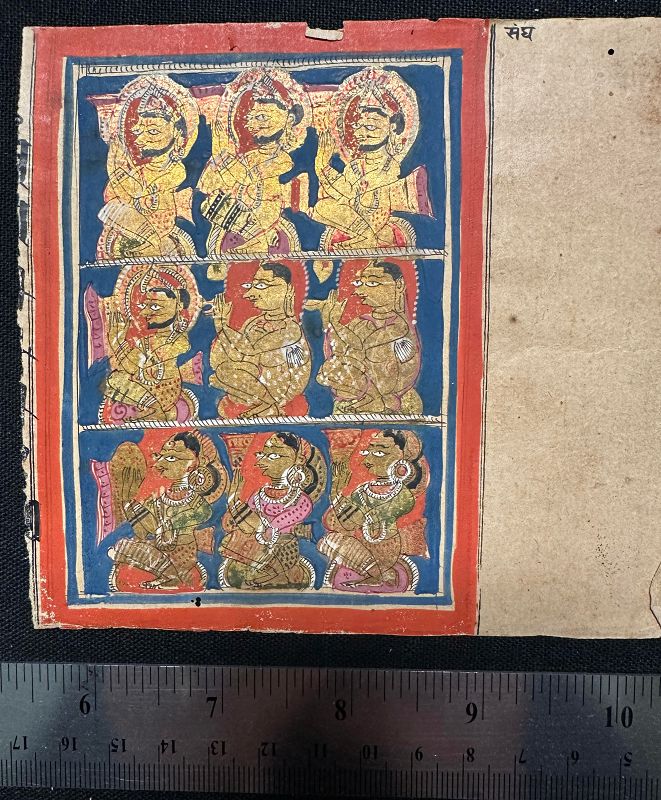 संघ
6 7 8 9 10
17 16 15 14 13 12 11 10 9 8 7 6 5